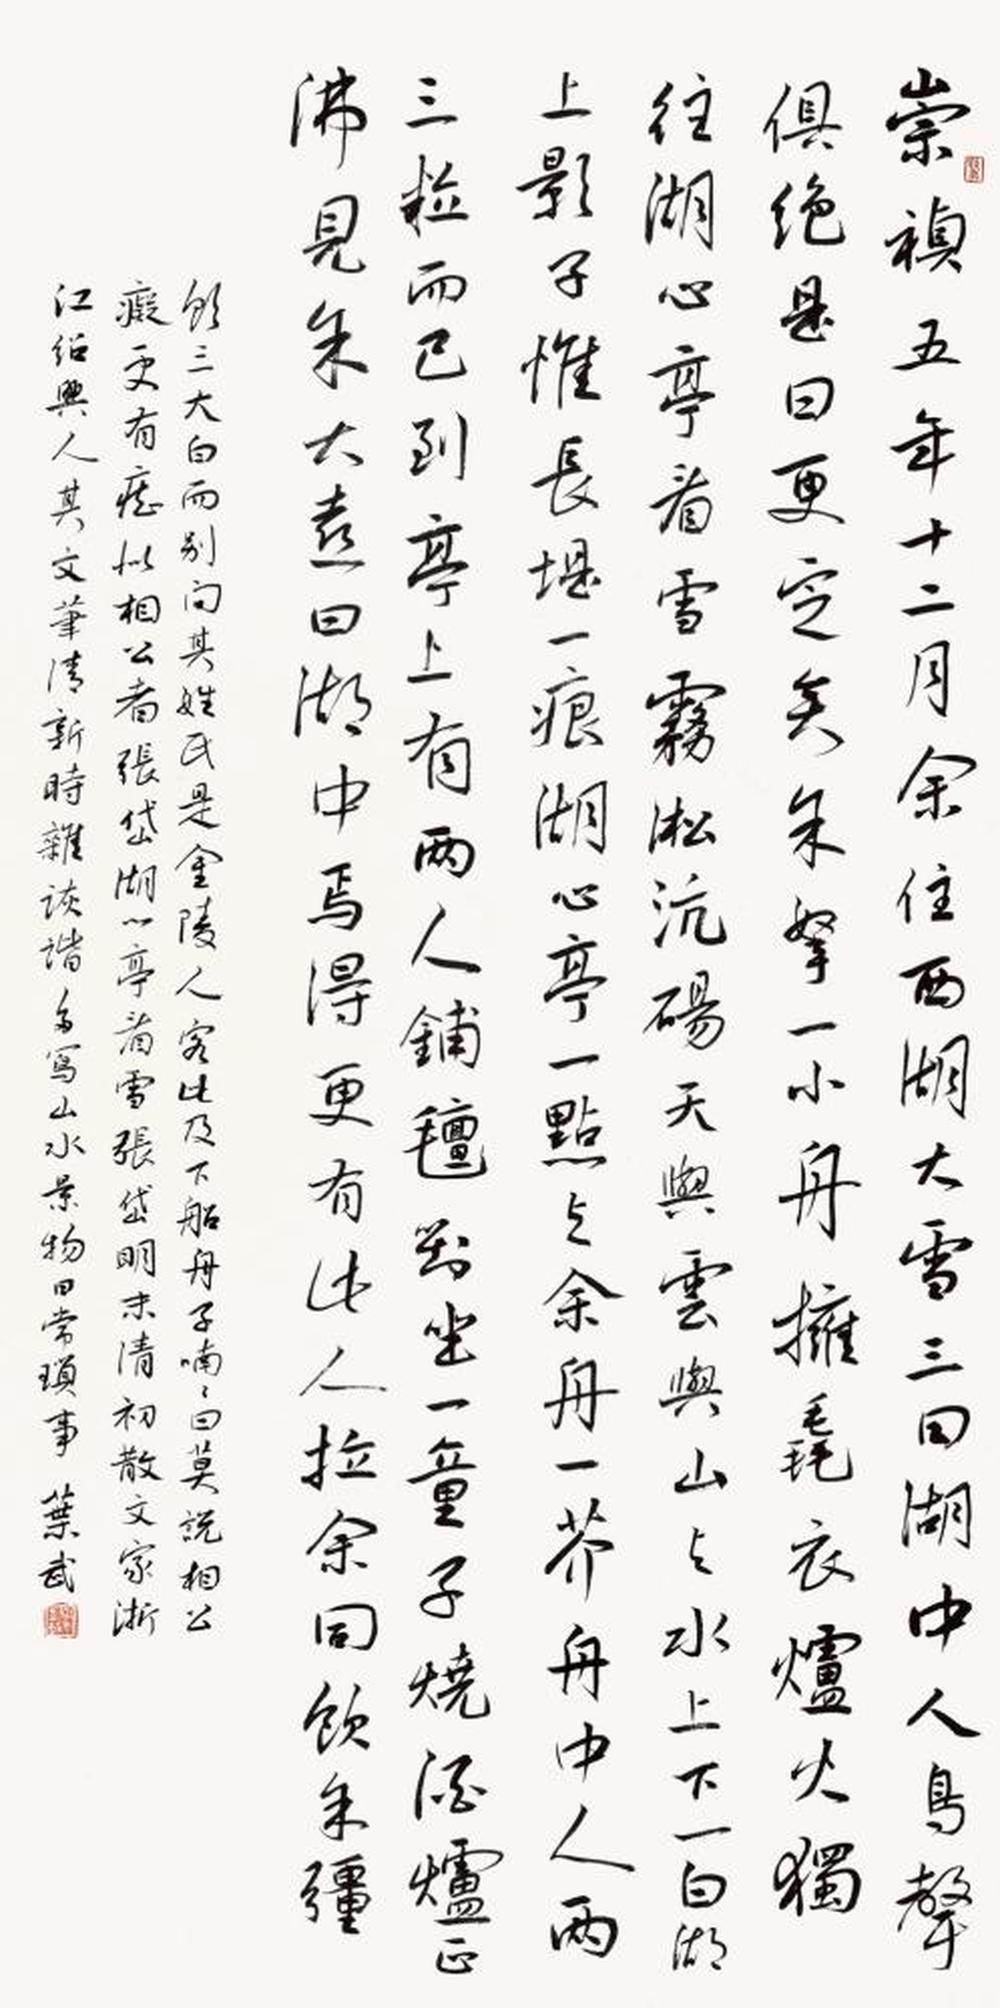 崇禎五年十二月余住西湖大雪三日湖中人鳥聲
俱絕是日更定矣余拏一小舟擁毳衣爐火獨
往湖心亭看雪霧淞沆碭天與雲與山与水上下一白湖
上影子惟長堤一痕湖心亭一點与余舟一芥舟中人兩
三粒而已到亭上有兩人鋪氈對坐一童子燒酒爐正
沸見余大喜曰湖中焉得更有此人拉余同飲余彊
飲三大白而別問其姓氏是金陵人客此及下船舟子喃喃曰莫說相公
癡更有癡似相公者張岱湖心亭看雪張岱明末清初散文家浙
江紹興人其文筆清新時雜詼諧多寫山水景物日常瑣事 葉武